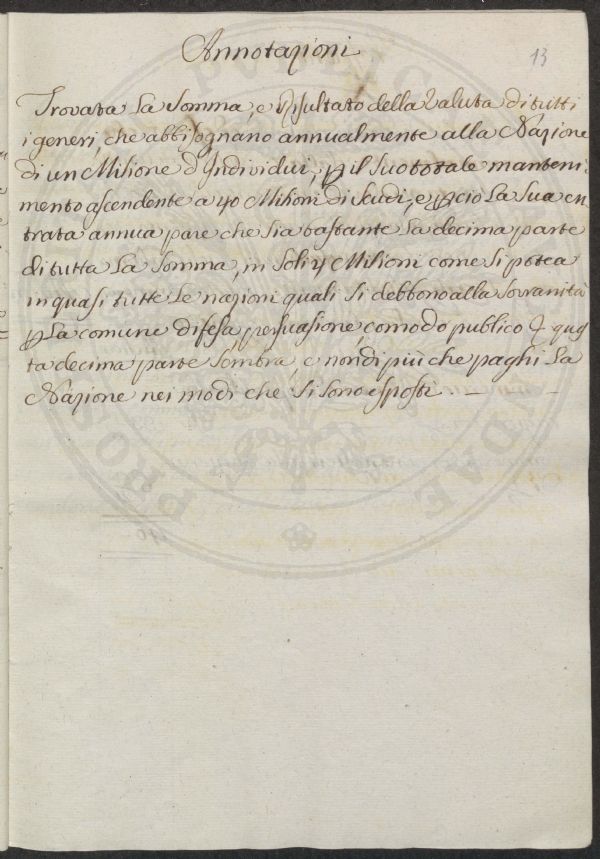 Annotazioni
13
Trovata La Somma, e Risultato della Valuta di tutti
i generi, che abbisognano annualmente alla Nazione
di un Milione d'Individui, p il suo totale manteni-
mento ascendente a 40 Milioni di Scudi, e pciò La Sua en
trata annua pare che sia bastante La decima parte
di tutta La Somma, in Soli 4 Milioni come si potea
in quasi tutte Le nazioni quali si debbono alla sovranità
p La comune difesa, persuasione, comodo publico &
ta decima parte sembra, e non di più che paghi La
Nazione nei modi che si sono esposti